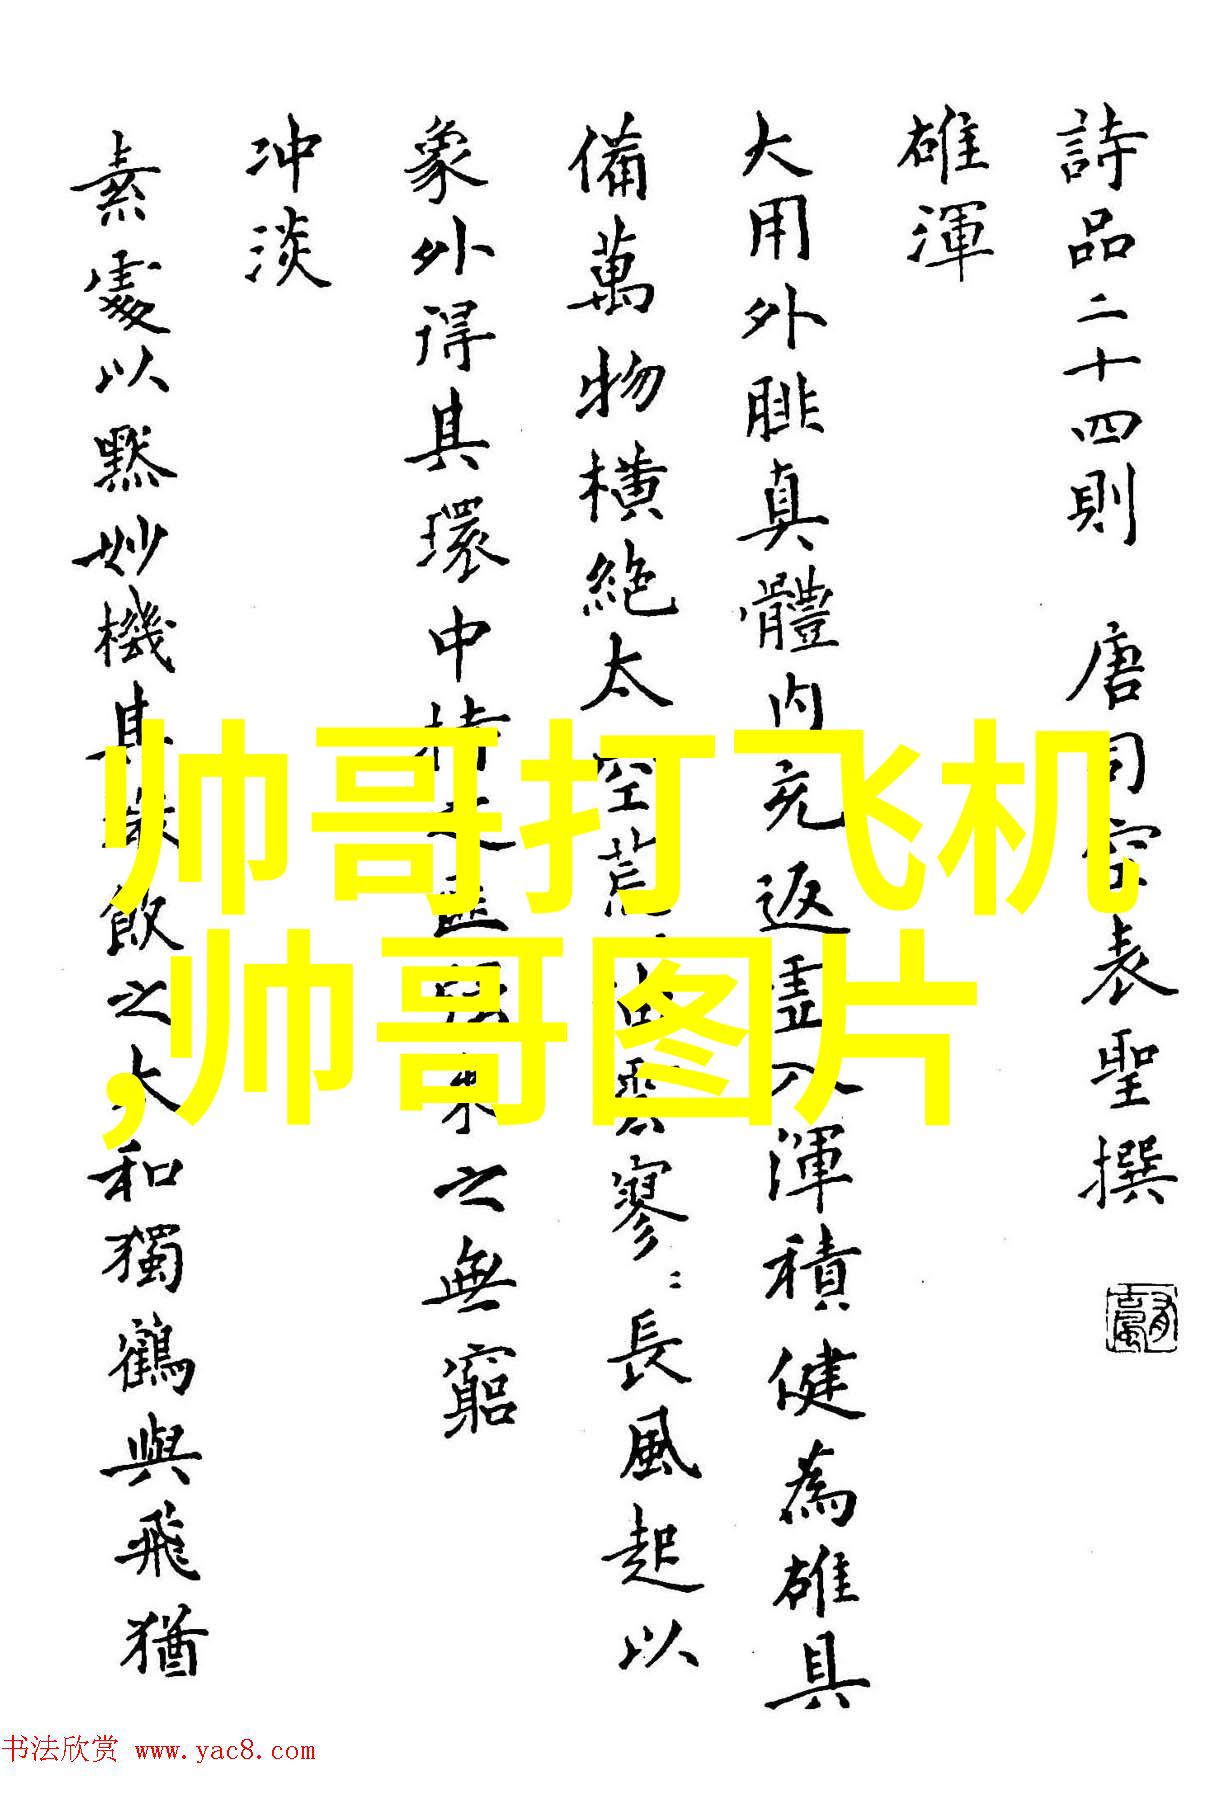 詩品二十四則 唐司空表聖撰
雄渾
大用外腓真體內充返虛入渾積健為雄具
備萬物橫絕太空荒油雲寥〻長風起以
象外得其環中持之匪强來之無窮
冲淡
素處以默妙機其微飲之太和獨鶴與飛猶
帅哥打飞机
,帅哥图片
书法欣赏 www.yac8.com